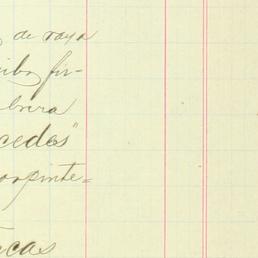 de raya
cibo fir-
brera
cedes"
carpinte=
cas